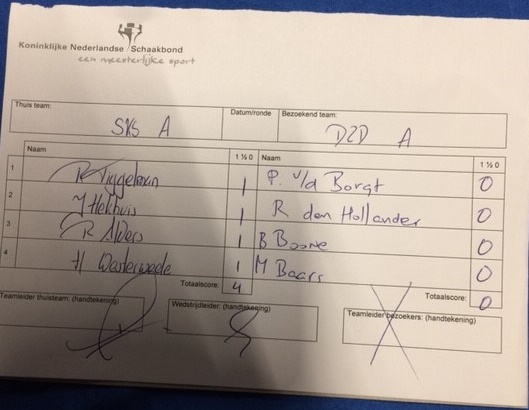 Koninklijke Nederlandse Schaakbond
een meesterlijke sport
Thuis team: Datum/ronde Bezoekend team:
SXS A DZD A
Naam 1 ½ 0 Naam 1 ½ 0
1 R Tiggelman 1 P. v/d Borgt 0
2 M Hekhuis 1 R den Hollander 0
3 R Alders 1 B Boone 0
4 H Westerweele 1 M Baars 0
Totaalscore: 4 Totaalscore: 0
Teamleider thuisteam: (handtekening) Wedstrijdleider: (handtekening) Teamleider bezoekers: (handtekening)